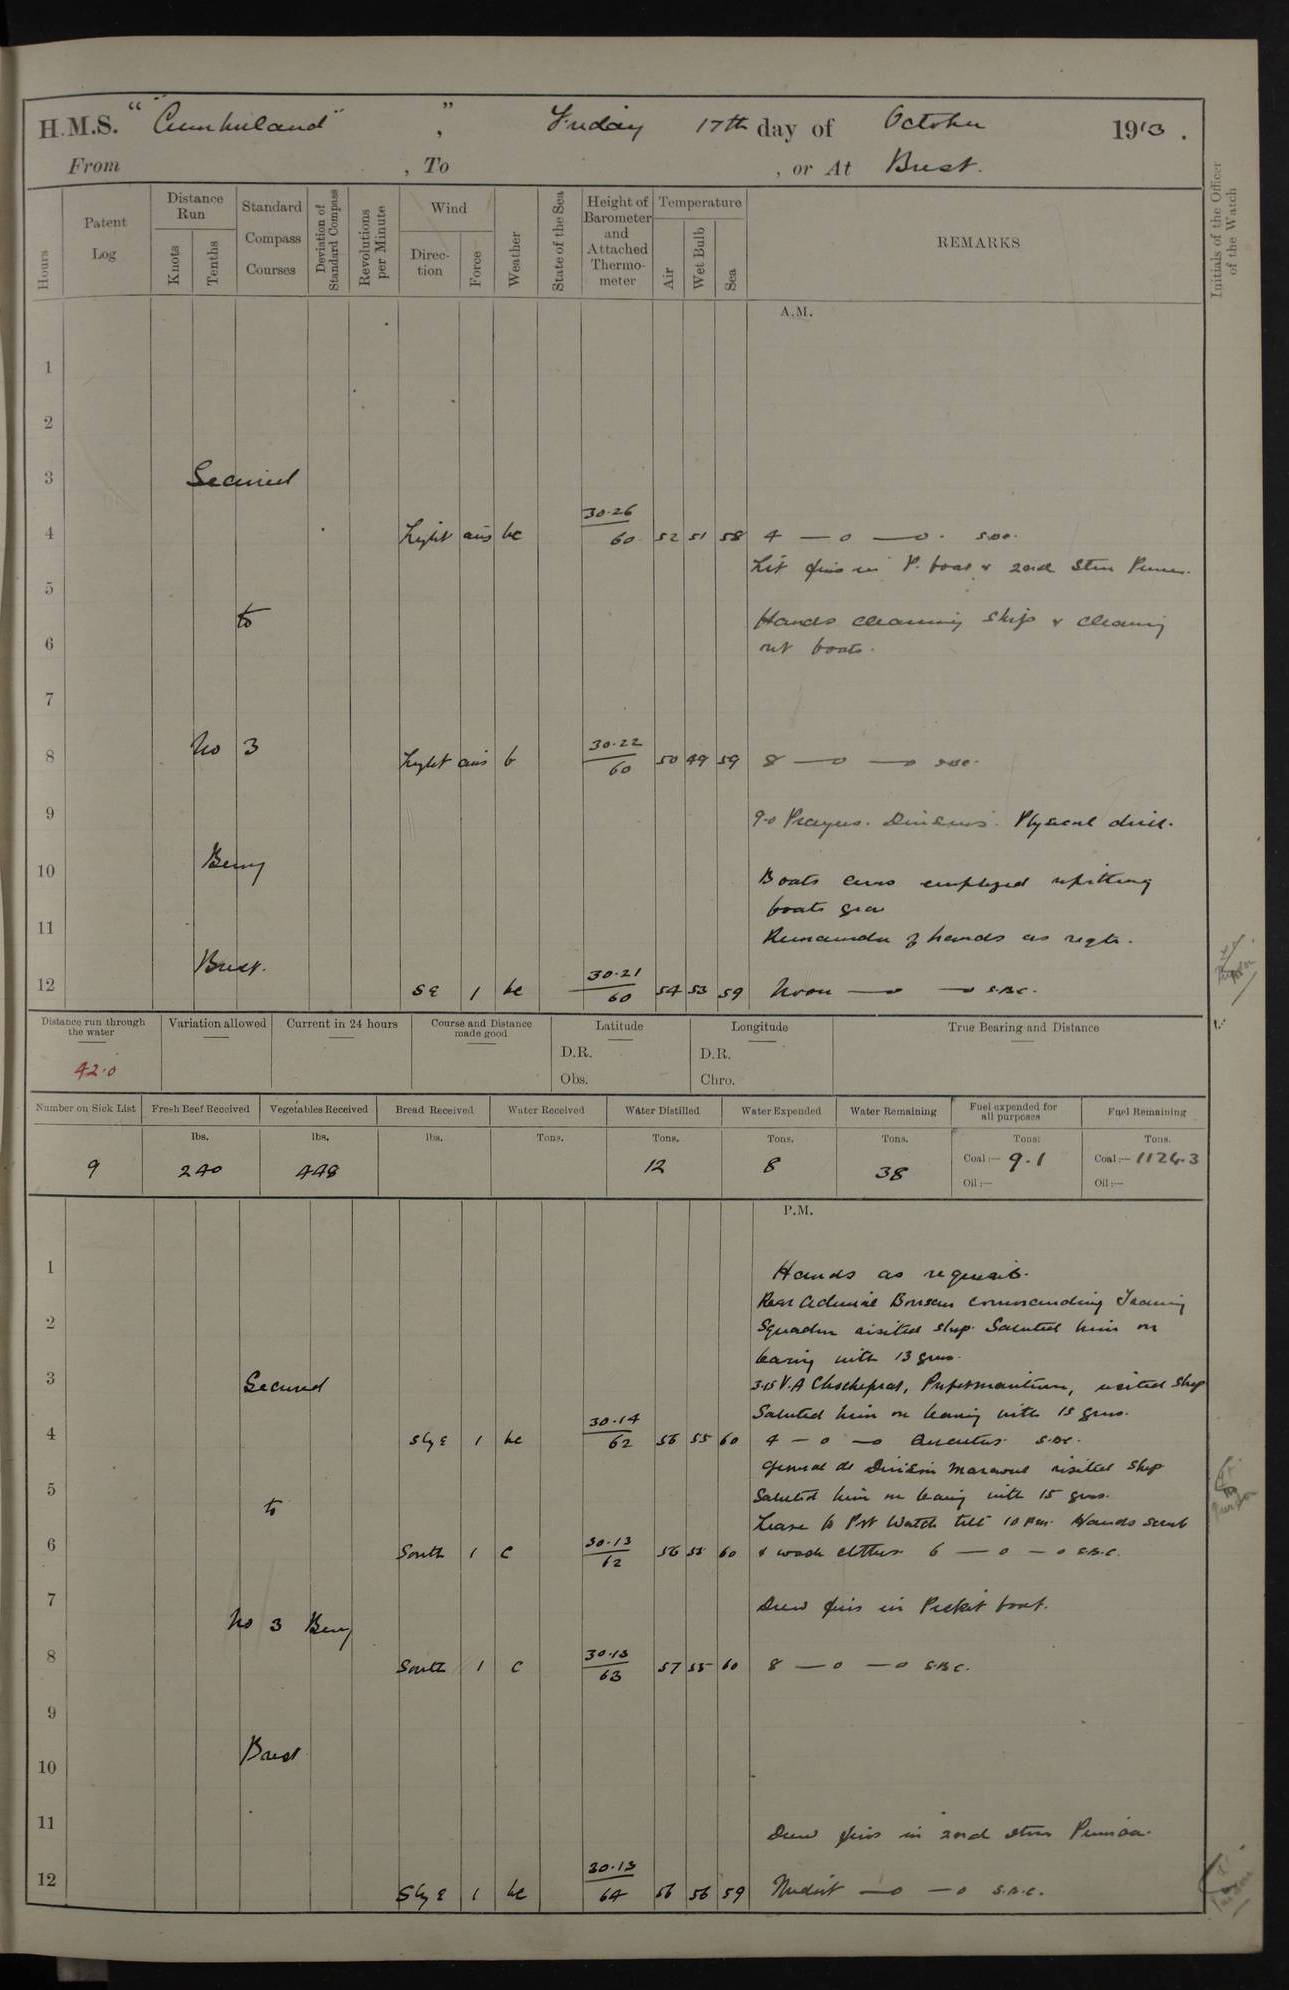 H.M.S. "Cumberland", Friday 17th day of October 1913.
From , To , or At Brest.
Hours
Patent Log
Distance Run
Knots
Tenths
Standard Compass Courses
Deviation of Standard Compass
Revolutions per Minute
Wind
Direction
Force
Weather
State of the Sea
Height of Barometer and Attached Thermometer
Temperature
Air
Wet Bulb
Sea
REMARKS
Initials of the Officer of the Watch
A.M.
1
2
3 Secured
4 Light airs bc 30.26 60 52 51 58 4 — o — o.
Lit fires in P. boat & 2nd Stm Pinn.
5
to Hands cleaning ship & cleaning
6 out boats.
7
8 No 3 Light airs b 30.22 60 50 49 59 8 — o — o
9 9.0 Prayers. Divisions. Physical drill.
10 Berg
Boats crews employed refitting
boats gear
11 Remainder of hands as reqte.
Brest.
12 SE 1 bc 30.21 60 54 53 59 Noon — o — o S.B.C.
Distance run through the water
42.0
Variation allowed
Current in 24 hours
Course and Distance made good
Latitude
D.R.
Obs.
Longitude
D.R.
Chro.
True Bearing and Distance
Number on Sick List
9
Fresh Beef Received
lbs.
240
Vegetables Received
lbs.
448
Bread Received
lbs.
Water Received
Tons.
Water Distilled
Tons.
12
Water Expended
Tons.
8
Water Remaining
Tons.
38
Fuel expended for all purposes
Tons:
Coal:— 9.1
Oil:—
Fuel Remaining
Tons.
Coal:— 1124.3
Oil:—
P.M.
1 Hands as requisite.
Rear Admiral commanding Training
2 Squadron visited ship. Saluted him on
leaving with 13 guns.
3 Secured 3.15 V.A Chocheprat, Prefet maritime, visited ship
Saluted him on leaving with 15 guns.
4 S by E 1 bc 30.14 62 56 55 60 4 — o — o
General de Division visited ship
5 Saluted him on leaving with 15 guns.
to
Leave to Pt Watch till 10 pm. Hands scrub
6 South 1 c 30.13 62 56 55 60 & wash clothes. 6 — o — o S.B.C.
7 Drew fires in Picket boat.
No 3 Berg
8 South 1 c 30.13 63 57 55 60 8 — o — o S.B.C.
9
Brest
10
11 Drew fires in 2nd stm Pinnace.
12 S by E 1 bc 30.13 64 56 56 59 Midnt — o — o S.B.C.